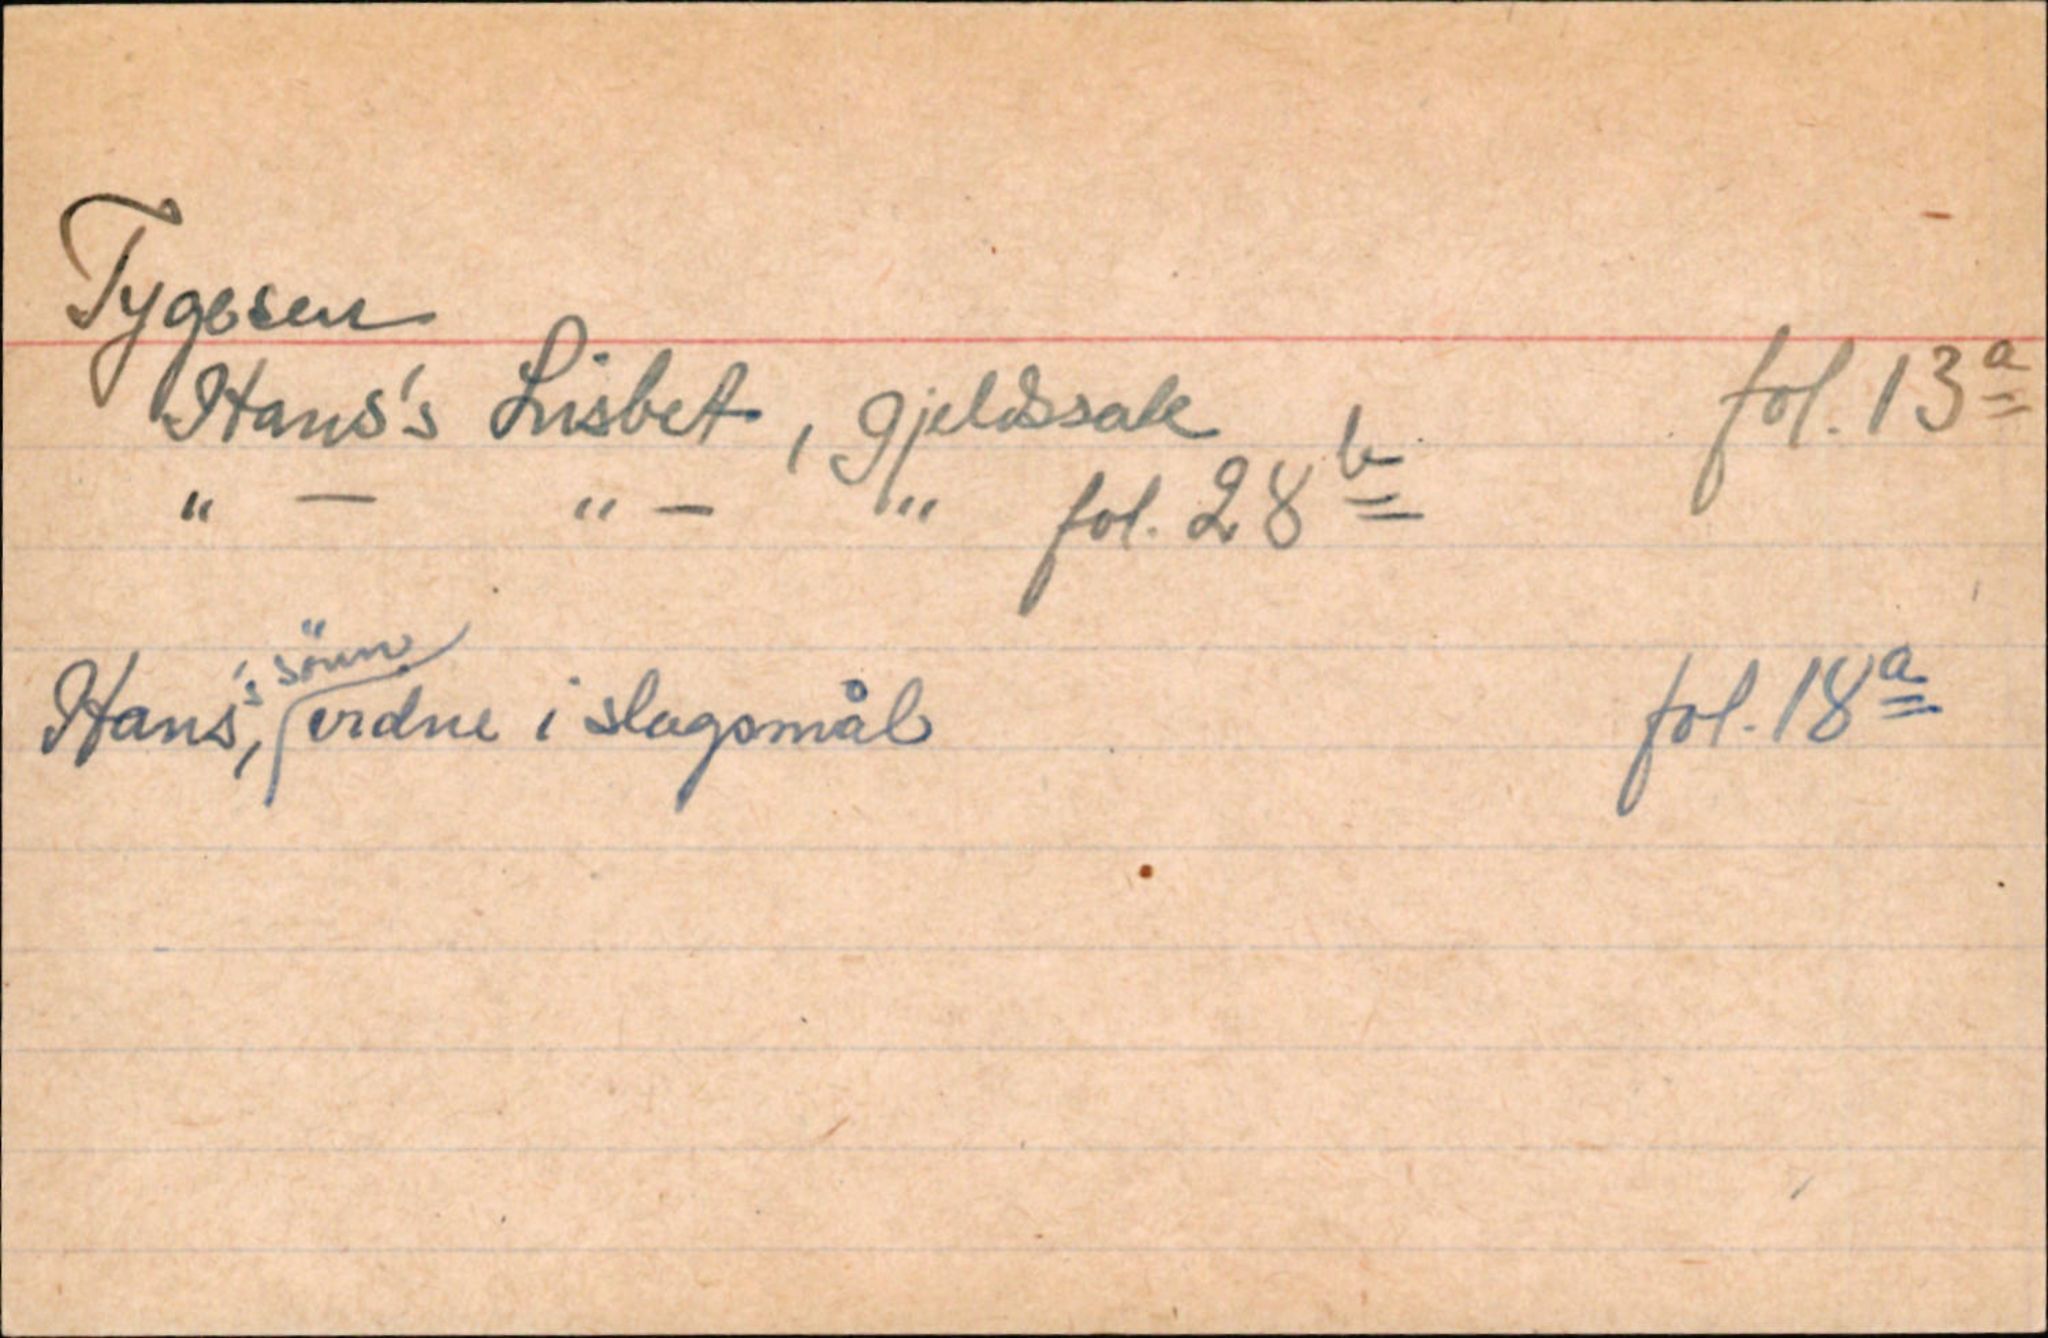 Tygesen
Hans's Lisbet, gjeldssak fol. 13a
" — " — " fol. 28b
Hans's sönn, vidne i slagsmål fol. 18a